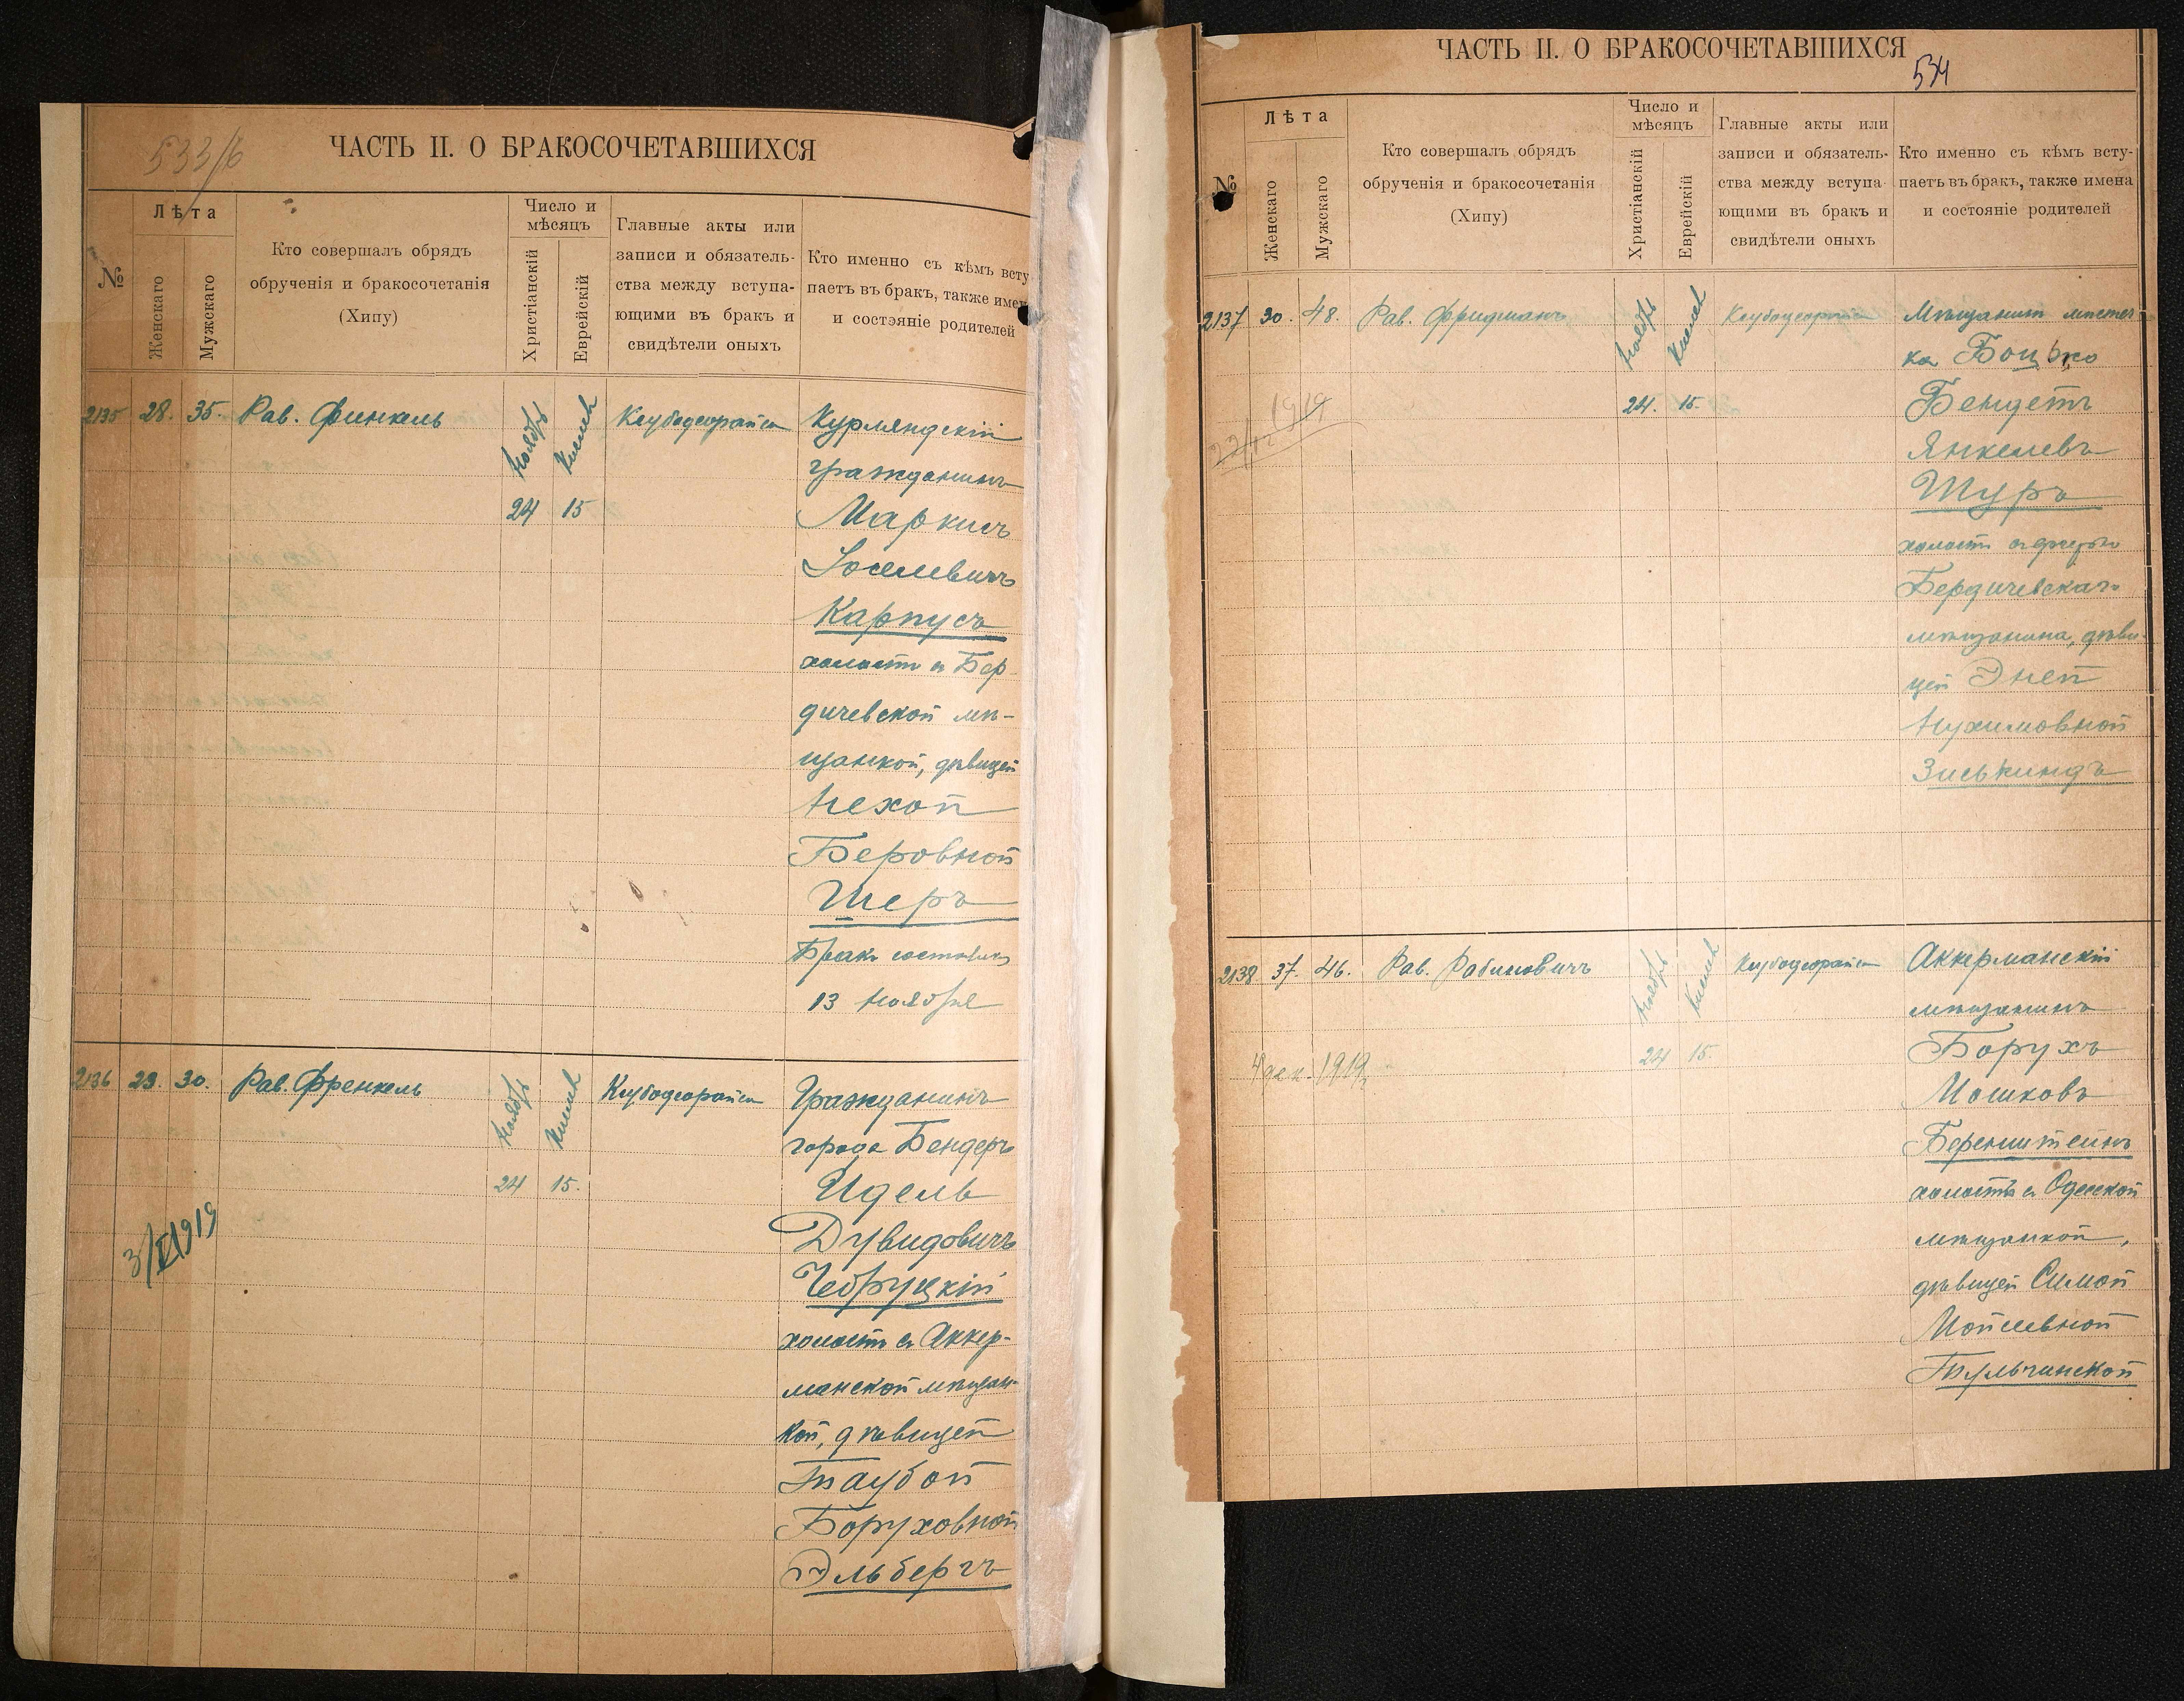 533/б
ЧАСТЬ II. О БРАКОСОЧЕТАВШИХСЯ
№
Лѣта
Женскаго
Мужскаго
Кто совершалъ обрядъ
обрученія и бракосочетанія
(Хипу)
Число и
мѣсяцъ
Христіанскій
Еврейскій
Главные акты или
записи и обязатель-
ства между вступа-
ющими въ бракъ и
свидѣтели оныхъ
Кто именно съ кѣмъ всту
паетъ въ бракъ, также имен
и состояніе родителей
2135 28. 35. Рав. Финкель Ноябрь Кислев Ксубодеорайса Курляндскій
гражданинъ
24 15 Маркусъ
Іоселевичъ
Карпусъ
холостъ съ Бер
дичевской мѣ-
щанкой, дѣвицей
Нехой
Беровной
Шеръ
Бракъ состоялся
13 Ноября
2136 29. 30. Рав. Френкель Ноябрь Кислев Ксубодеорайса Гражданинъ
города Бендеръ
24 15. Идель
Дувидовичъ
3/XII 1919
Чебруцкій
холостъ съ Аккер-
манской мѣщан-
кой, дѣвицей
Таубой
Боруховной
Эльбергъ
ЧАСТЬ II. О БРАКОСОЧЕТАВШИХСЯ
534
№
Лѣта
Женскаго
Мужскаго
Кто совершалъ обрядъ
обрученія и бракосочетанія
(Хипу)
Число и
мѣсяцъ
Христіанскій
Еврейскій
Главные акты или
записи и обязатель-
ства между вступа-
ющими въ бракъ и
свидѣтели оныхъ
Кто именно съ кѣмъ всту-
паетъ въ бракъ, также имена
и состояніе родителей
2137 30. 48. Рав. Фридманъ Ноябрь Кислев Ксубодеорайса Мѣщанинъ мѣстеч
ка Боцько
24. 15. Бендетъ
1919
Янкелевъ
Шуръ
холостъ съ дочерью
Бердичевскаго
мѣщанина, дѣви-
цей Эней
Нухимовной
Зиськиндъ
2138 37. 46. Рав. Рабиновичъ Ноябрь Кислев Ксубодеорайса Аккерманскій
мѣщанинъ
24 15. Борухъ
4 дек. 1919
Мошковъ
Беренштейнъ
холостъ съ Одесской
мѣщанкой,
дѣвицей Симой
Мойсевной
Тульчинской